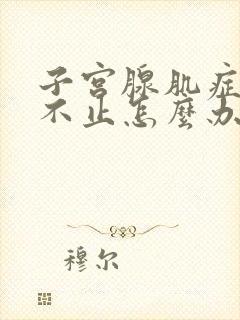 子宫腺肌症
不止怎麼办
穆尔